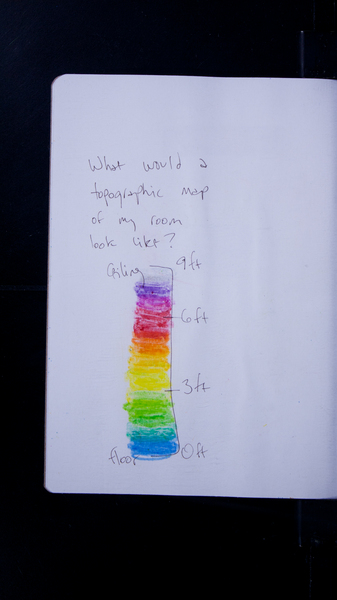 What would a
topographic map
of my room
look like?
Ceiling 9ft
6ft
3ft
floor 0ft